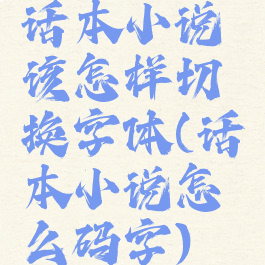 话本小说
该怎样切
换字体(话
本小说怎
么码字)